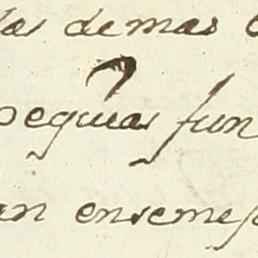 las demas
pequias fun
an enseme